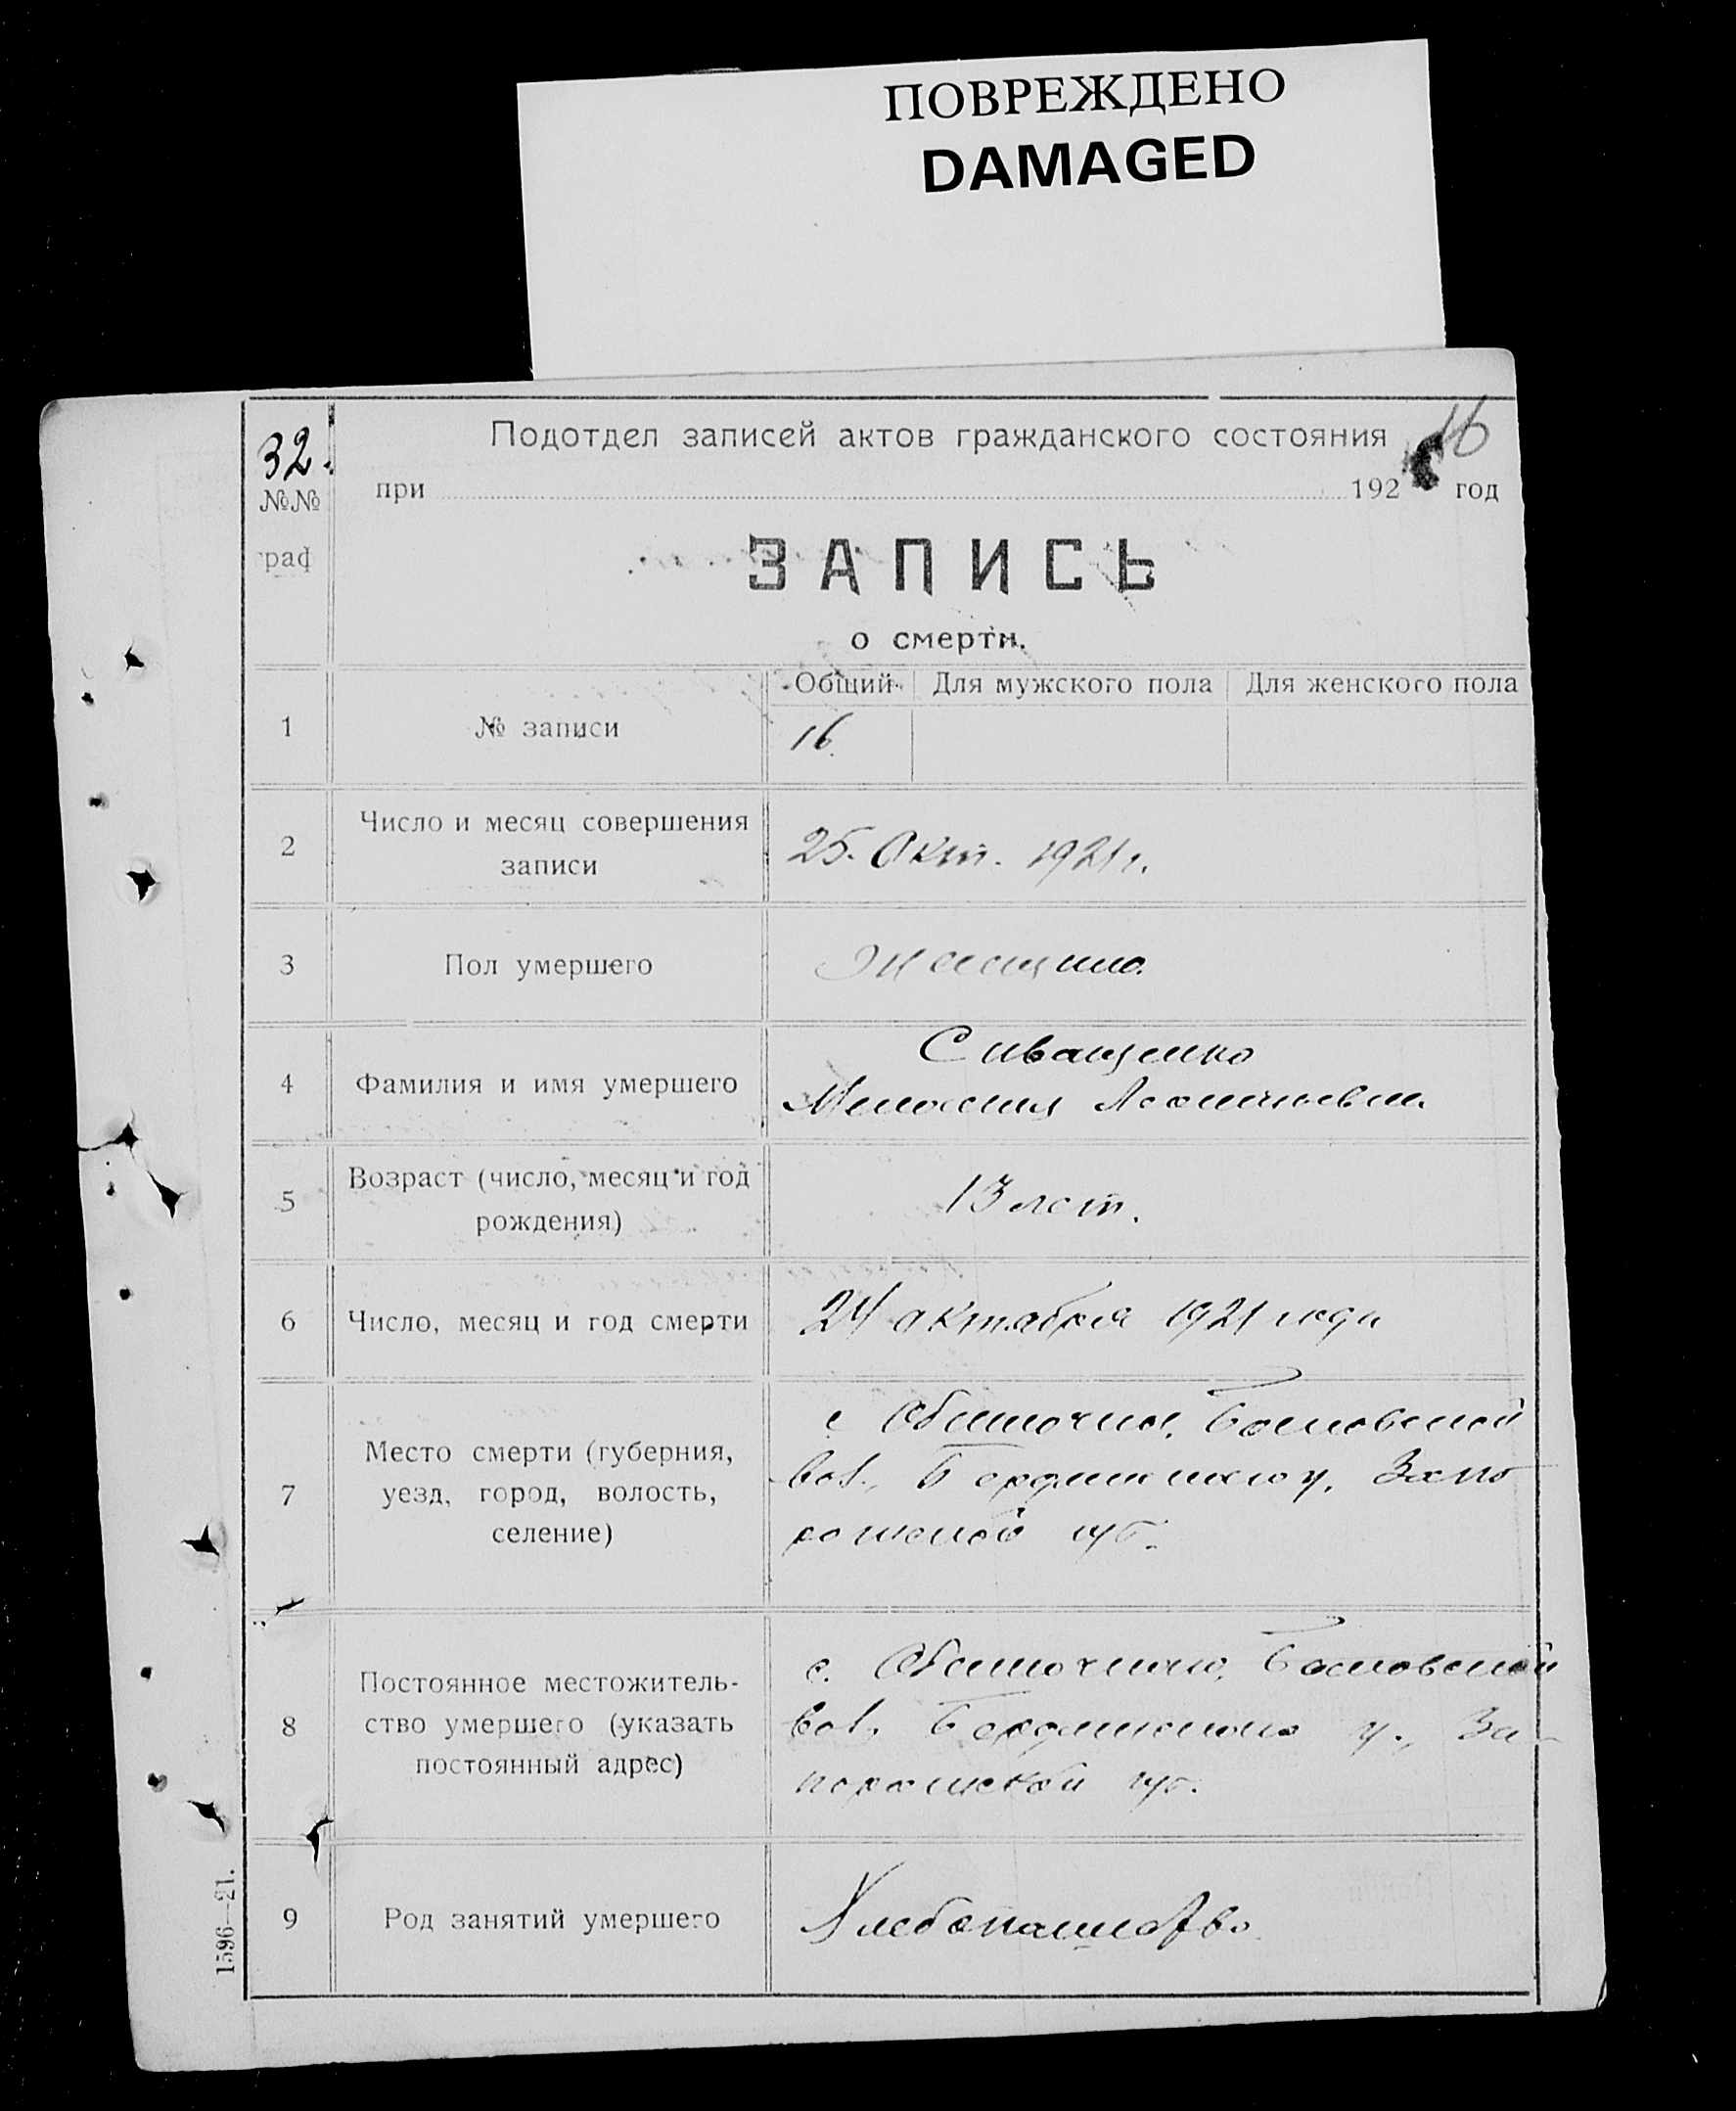 ПОВРЕЖДЕНО
DAMAGED
16
32.
№№
граф
Подотдел записей актов гражданского состояния
при 192 год
ЗАПИСЬ
о смерти.
Общий Для мужского пола Для женского пола
1 № записи 16
2 Число и месяц совершения
записи
25. Окт. 1921 г.
3 Пол умершего Женщина
4 Фамилия и имя умершего
Сиващенко
5 Возраст (число, месяц и год
рождения)
13 лет.
6 Число, месяц и год смерти 24 октября 1921 года
7 Место смерти (губерния,
уезд, город, волость,
селение)
с Обиточна,
вол., Бердянского у, Запо
рожской губ.
8 Постоянное местожитель-
ство умершего (указать
постоянный адрес)
с. Обиточная,
вол., Бердянского у., За-
порожской губ.
9 Род занятий умершего Хлебопашество
1596—21.